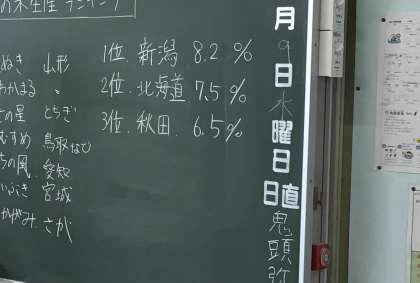 の米生産ランキング
1位.新潟 8.2 %
2位.北海道 7.5 %
3位.秋田. 6.5%
ぬき 山形
わかまる 〃
の星 とちぎ
むすめ 鳥取など
ちの風. 愛知
いぶき 宮城
かがみ. さが
月
9
日
水
曜
日
日直
鬼
頭
弥